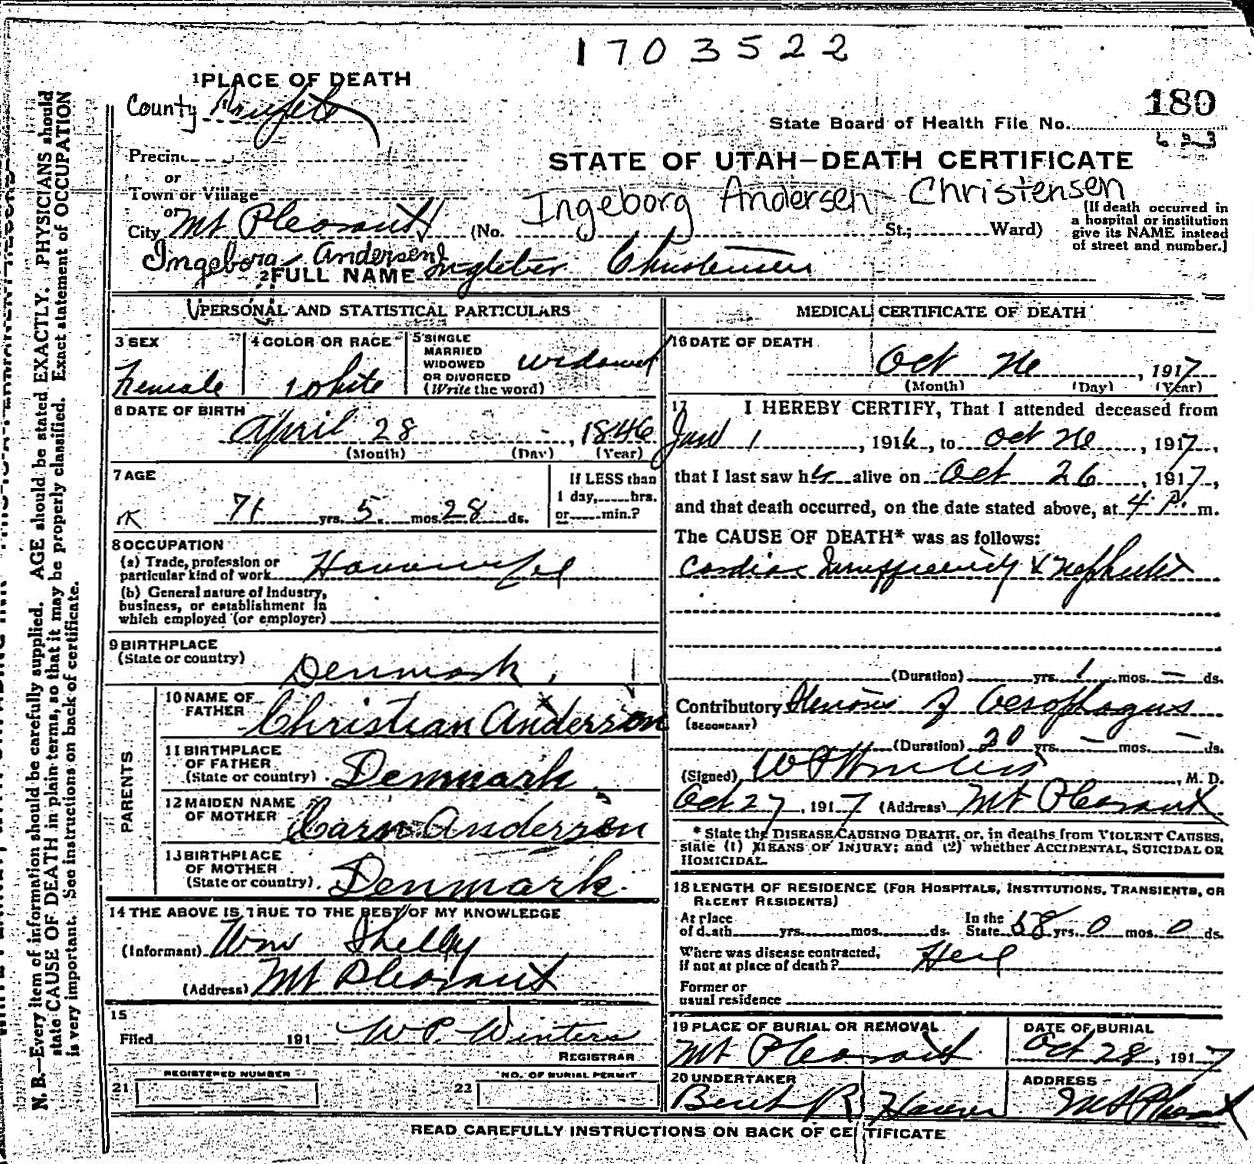 1703522
1 PLACE OF DEATH
County Sanpete
180
State Board of Health File No.
Precinct
or
STATE OF UTAH—DEATH CERTIFICATE
Town or Village
Ingeborg Andersen Christensen
or
City Mt Pleasant (No. St.; Ward)
[If death occurred in
a hospital or institution
give its NAME instead
of street and number.]
Ingeborg Andersen
2 FULL NAME Christensen
PERSONAL AND STATISTICAL PARTICULARS
3 SEX
Female
4 COLOR OR RACE
White
5 SINGLE
MARRIED
WIDOWED
OR DIVORCED
(Write the word)
widowed
6 DATE OF BIRTH
April 28, 1846
(Month) (Day) (Year)
7 AGE
71 yrs. 5 mos. 28 ds.
If LESS than
1 day, hrs.
or min.?
8 OCCUPATION
(a) Trade, profession or
particular kind of work Housewife
(b) General nature of Industry,
business, or establishment in
which employed (or employer)
9 BIRTHPLACE
(State or country) Denmark
PARENTS
10 NAME OF
FATHER Christian Anderson
11 BIRTHPLACE
OF FATHER
(State or country) Denmark
12 MAIDEN NAME
OF MOTHER Carn Anderson
13 BIRTHPLACE
OF MOTHER
(State or country) Denmark
14 THE ABOVE IS TRUE TO THE BEST OF MY KNOWLEDGE
(Informant) Wm Shelly
(Address) Mt Pleasant
15
Filed 191 W P. Winters
REGISTRAR
REGISTERED NUMBER
21
NO. OF BURIAL PERMIT
22
MEDICAL CERTIFICATE OF DEATH
16 DATE OF DEATH
Oct 26, 1917
(Month) (Day) (Year)
17 I HEREBY CERTIFY, That I attended deceased from
Jan 1, 1916, to Oct 26, 1917,
that I last saw her alive on Oct 26, 1917,
and that death occurred, on the date stated above, at 4 P. m.
The CAUSE OF DEATH* was as follows:
Cardiac Insufficiency & Nephritis
(Duration) yrs. 1 mos. — ds.
Contributory Stenosis of Oesophagus
(SECONDARY)
(Duration) 20 yrs. — mos. — ds.
(Signed) W P Winters, M. D.
Oct 27, 1917 (Address) Mt Pleasant
* State the DISEASE CAUSING DEATH, or, in deaths from VIOLENT CAUSES,
state (1) MEANS OF INJURY; and (2) whether ACCIDENTAL, SUICIDAL OR
HOMICIDAL.
18 LENGTH OF RESIDENCE (FOR HOSPITALS, INSTITUTIONS, TRANSIENTS, OR
RECENT RESIDENTS)
At place
of death yrs. mos. ds.
In the
State 58 yrs. 0 mos. 0 ds.
Where was disease contracted,
if not at place of death? Here
Former or
usual residence
19 PLACE OF BURIAL OR REMOVAL
Mt Pleasant
DATE OF BURIAL
Oct 28, 1917
20 UNDERTAKER
Bent R Hansen
ADDRESS
Mt Pleasant
READ CAREFULLY INSTRUCTIONS ON BACK OF CERTIFICATE
N. B.—Every item of information should be carefully supplied. AGE should be stated EXACTLY. PHYSICIANS should
state CAUSE OF DEATH in plain terms, so that it may be properly classified. Exact statement of OCCUPATION
is very important. See instructions on back of certificate.